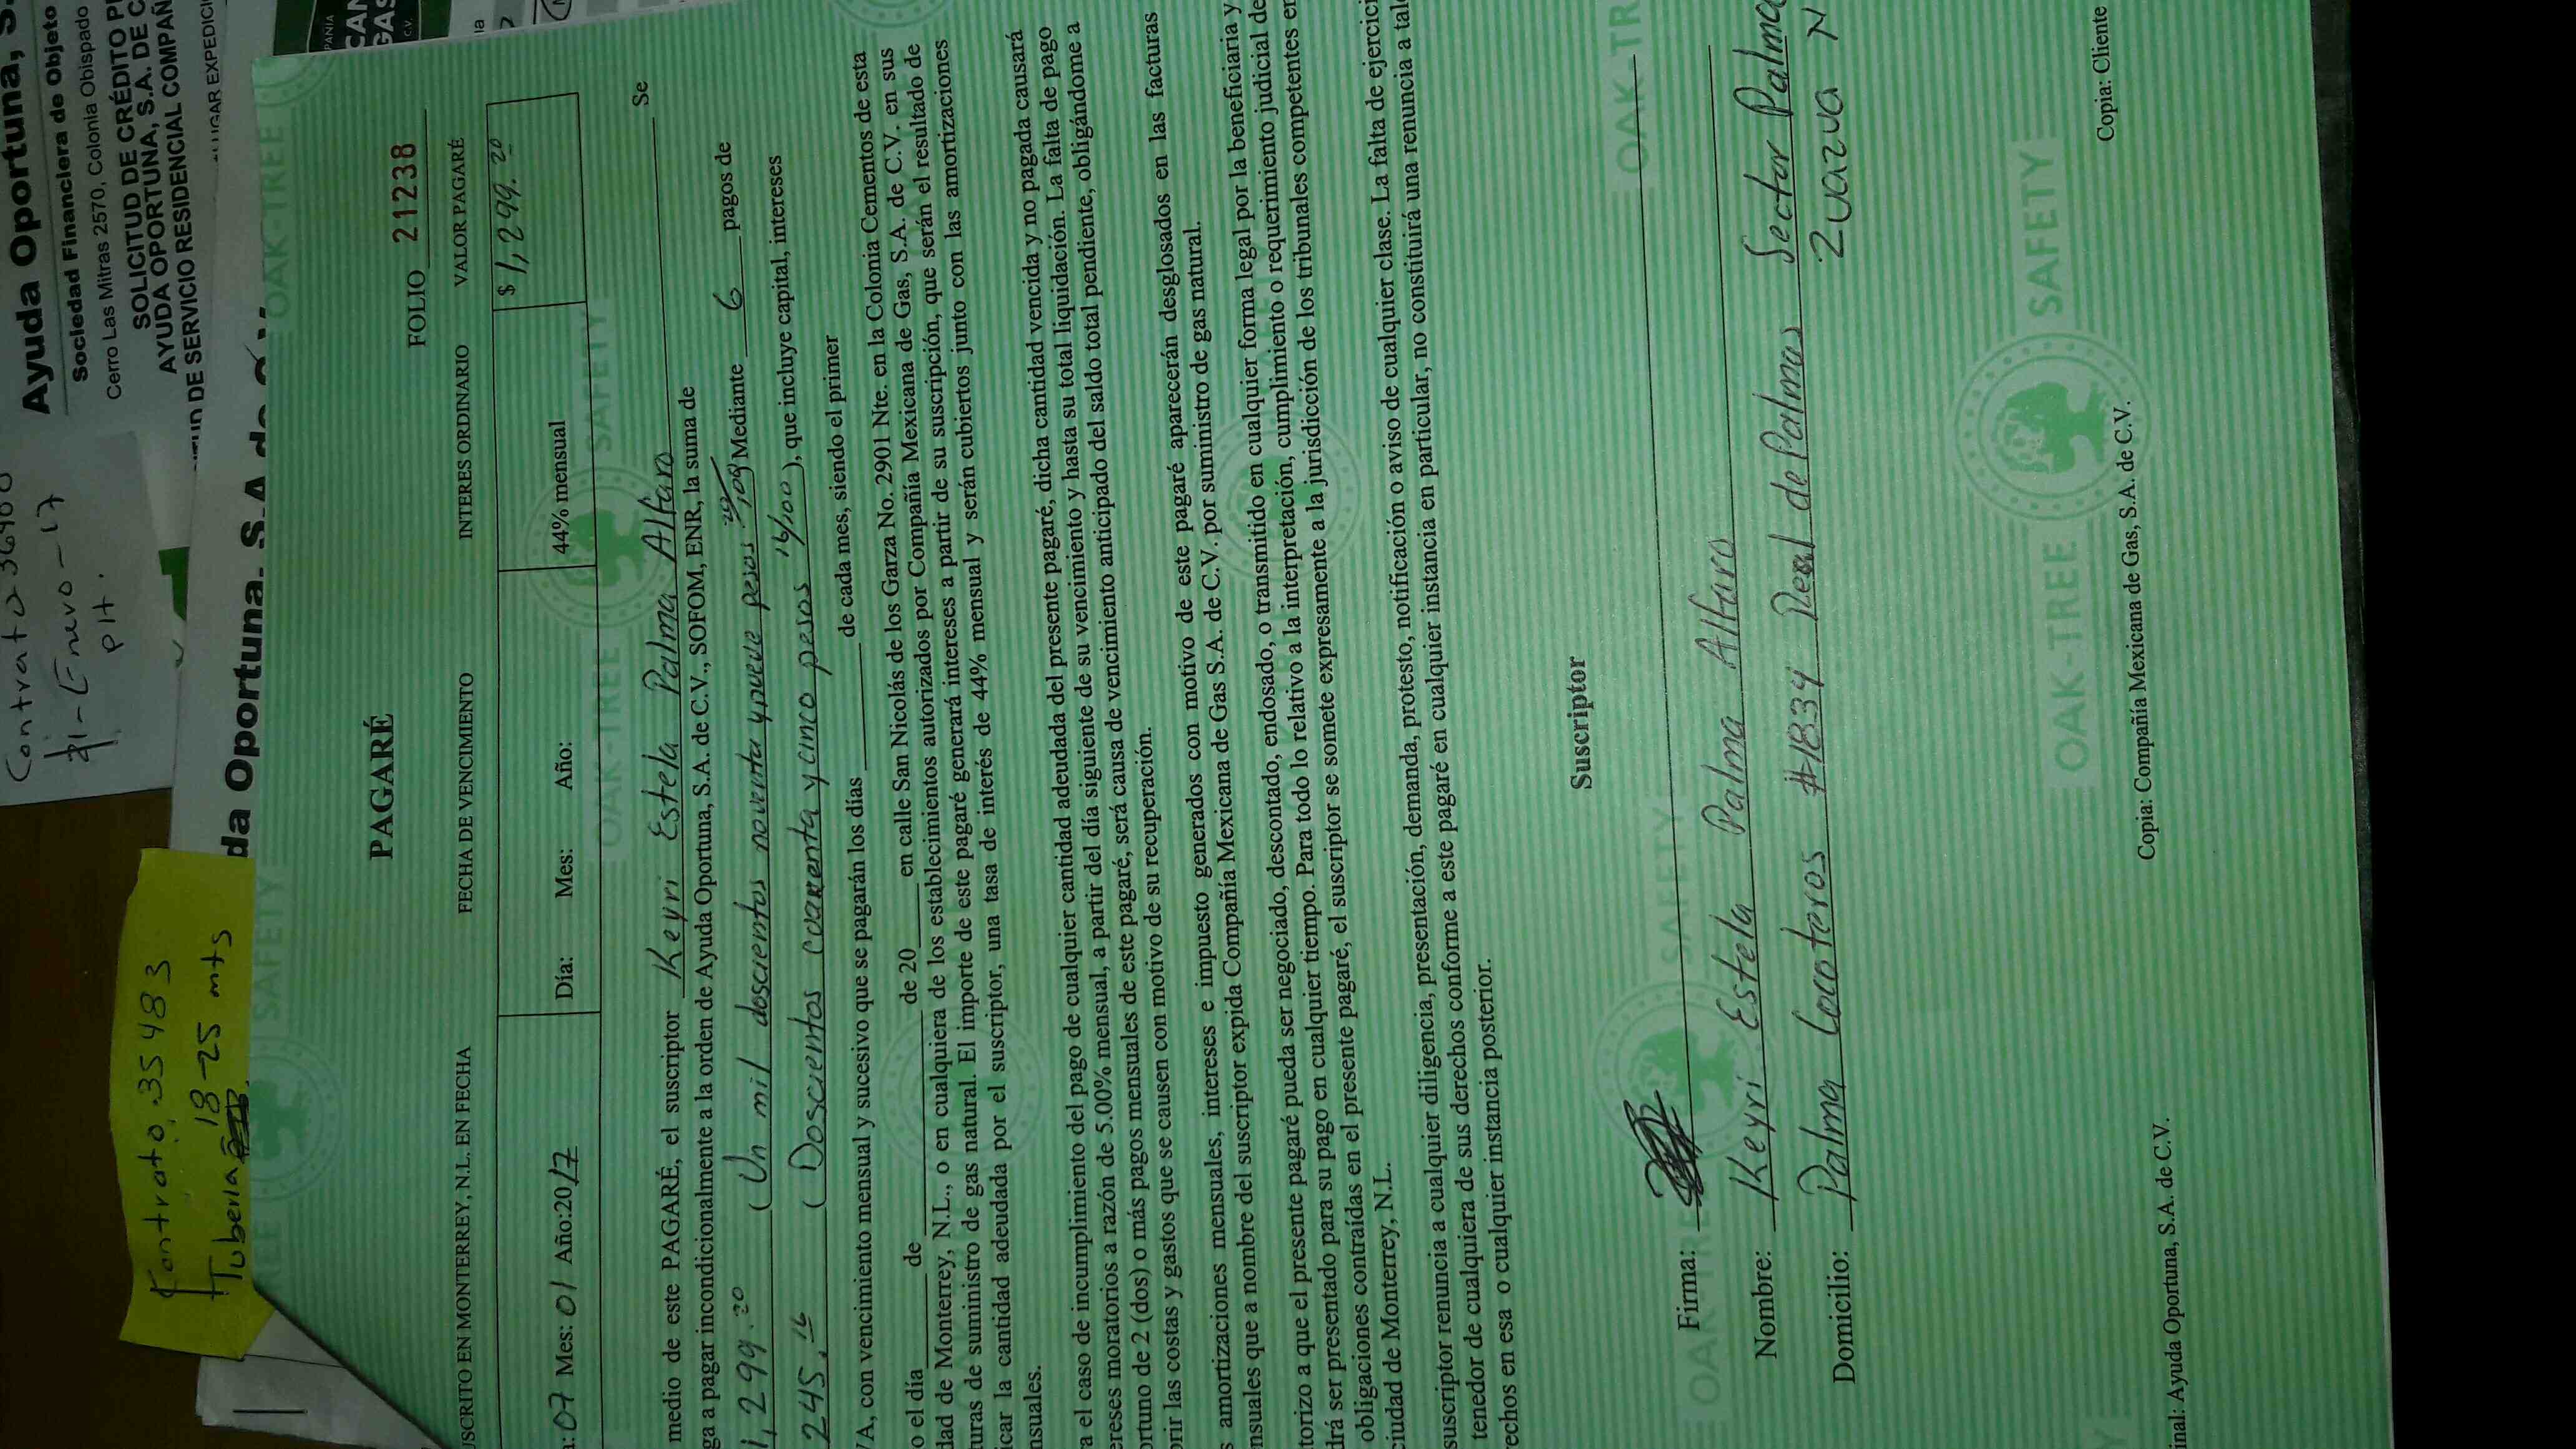 Contrato 35483
Tuberia 18-25 mts
Contrato 36400
Enero-17
pH.
Ayuda Oportuna, S.
Sociedad Financiera de Objeto
Cerro Las Mitras 2570, Colonia Obispado
SOLICITUD DE CRÉDITO P
AYUDA OPORTUNA, S.A. DE C
DE SERVICIO RESIDENCIAL COMPAÑ
LUGAR EXPEDICI
da Oportuna, S.A de C.V.
PAGARÉ
FOLIO 21238
USCRITO EN MONTERREY, N.L. EN FECHA FECHA DE VENCIMIENTO INTERES ORDINARIO VALOR PAGARÉ
a: 07 Mes: 01 Año:2017 Día: Mes: Año: 44% mensual $ 1,299.20
medio de este PAGARÉ, el suscriptor Keyri Estela Palma Alfaro Se
ga a pagar incondicionalmente a la orden de Ayuda Oportuna, S.A. de C.V., SOFOM, ENR, la suma de
1,299.20 (Un mil doscientos noventa y nueve pesos 20/100) Mediante 6 pagos de
245.16 (Doscientos cuarenta y cinco pesos 16/100), que incluye capital, intereses
VA, con vencimiento mensual y sucesivo que se pagarán los días de cada mes, siendo el primer
o el día de de 20 en calle San Nicolás de los Garza No. 2901 Nte. en la Colonia Cementos de esta
dad de Monterrey, N.L., o en cualquiera de los establecimientos autorizados por Compañía Mexicana de Gas, S.A. de C.V. en sus
turas de suministro de gas natural. El importe de este pagaré generará intereses a partir de su suscripción, que serán el resultado de
icar la cantidad adeudada por el suscriptor, una tasa de interés de 44% mensual y serán cubiertos junto con las amortizaciones
nsuales.
a el caso de incumplimiento del pago de cualquier cantidad adeudada del presente pagaré, dicha cantidad vencida y no pagada causará
ereses moratorios a razón de 5.00% mensual, a partir del día siguiente de su vencimiento y hasta su total liquidación. La falta de pago
ortuno de 2 (dos) o más pagos mensuales de este pagaré, será causa de vencimiento anticipado del saldo total pendiente, obligándome a
rir las costas y gastos que se causen con motivo de su recuperación.
s amortizaciones mensuales, intereses e impuesto generados con motivo de este pagaré aparecerán desglosados en las facturas
nsuales que a nombre del suscriptor expida Compañía Mexicana de Gas S.A. de C.V. por suministro de gas natural.
torizo a que el presente pagaré pueda ser negociado, descontado, endosado, o transmitido en cualquier forma legal por la beneficiaria y
drá ser presentado para su pago en cualquier tiempo. Para todo lo relativo a la interpretación, cumplimiento o requerimiento judicial de
obligaciones contraídas en el presente pagaré, el suscriptor se somete expresamente a la jurisdicción de los tribunales competentes en
ciudad de Monterrey, N.L.
suscriptor renuncia a cualquier diligencia, presentación, demanda, protesto, notificación o aviso de cualquier clase. La falta de ejercici
tenedor de cualquiera de sus derechos conforme a este pagaré en cualquier instancia en particular, no constituirá una renuncia a tale
echos en esa o cualquier instancia posterior.
Suscriptor
Firma:
Nombre: Keyri Estela Palma Alfaro
Domicilio: Palma Cocoteros #1834 Real de Palmas Sector Palma
Zuazua N
OAK-TREE SAFETY
Copia: Cliente
Copia: Compañía Mexicana de Gas, S.A. de C.V.
inal: Ayuda Oportuna, S.A. de C.V.